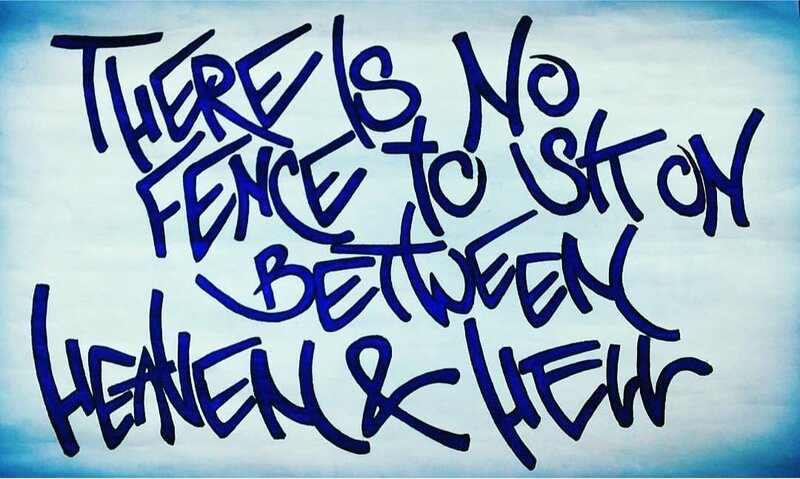 THERE IS NO
FENCE TO SIT ON
BETWEEN
HEAVEN & HELL